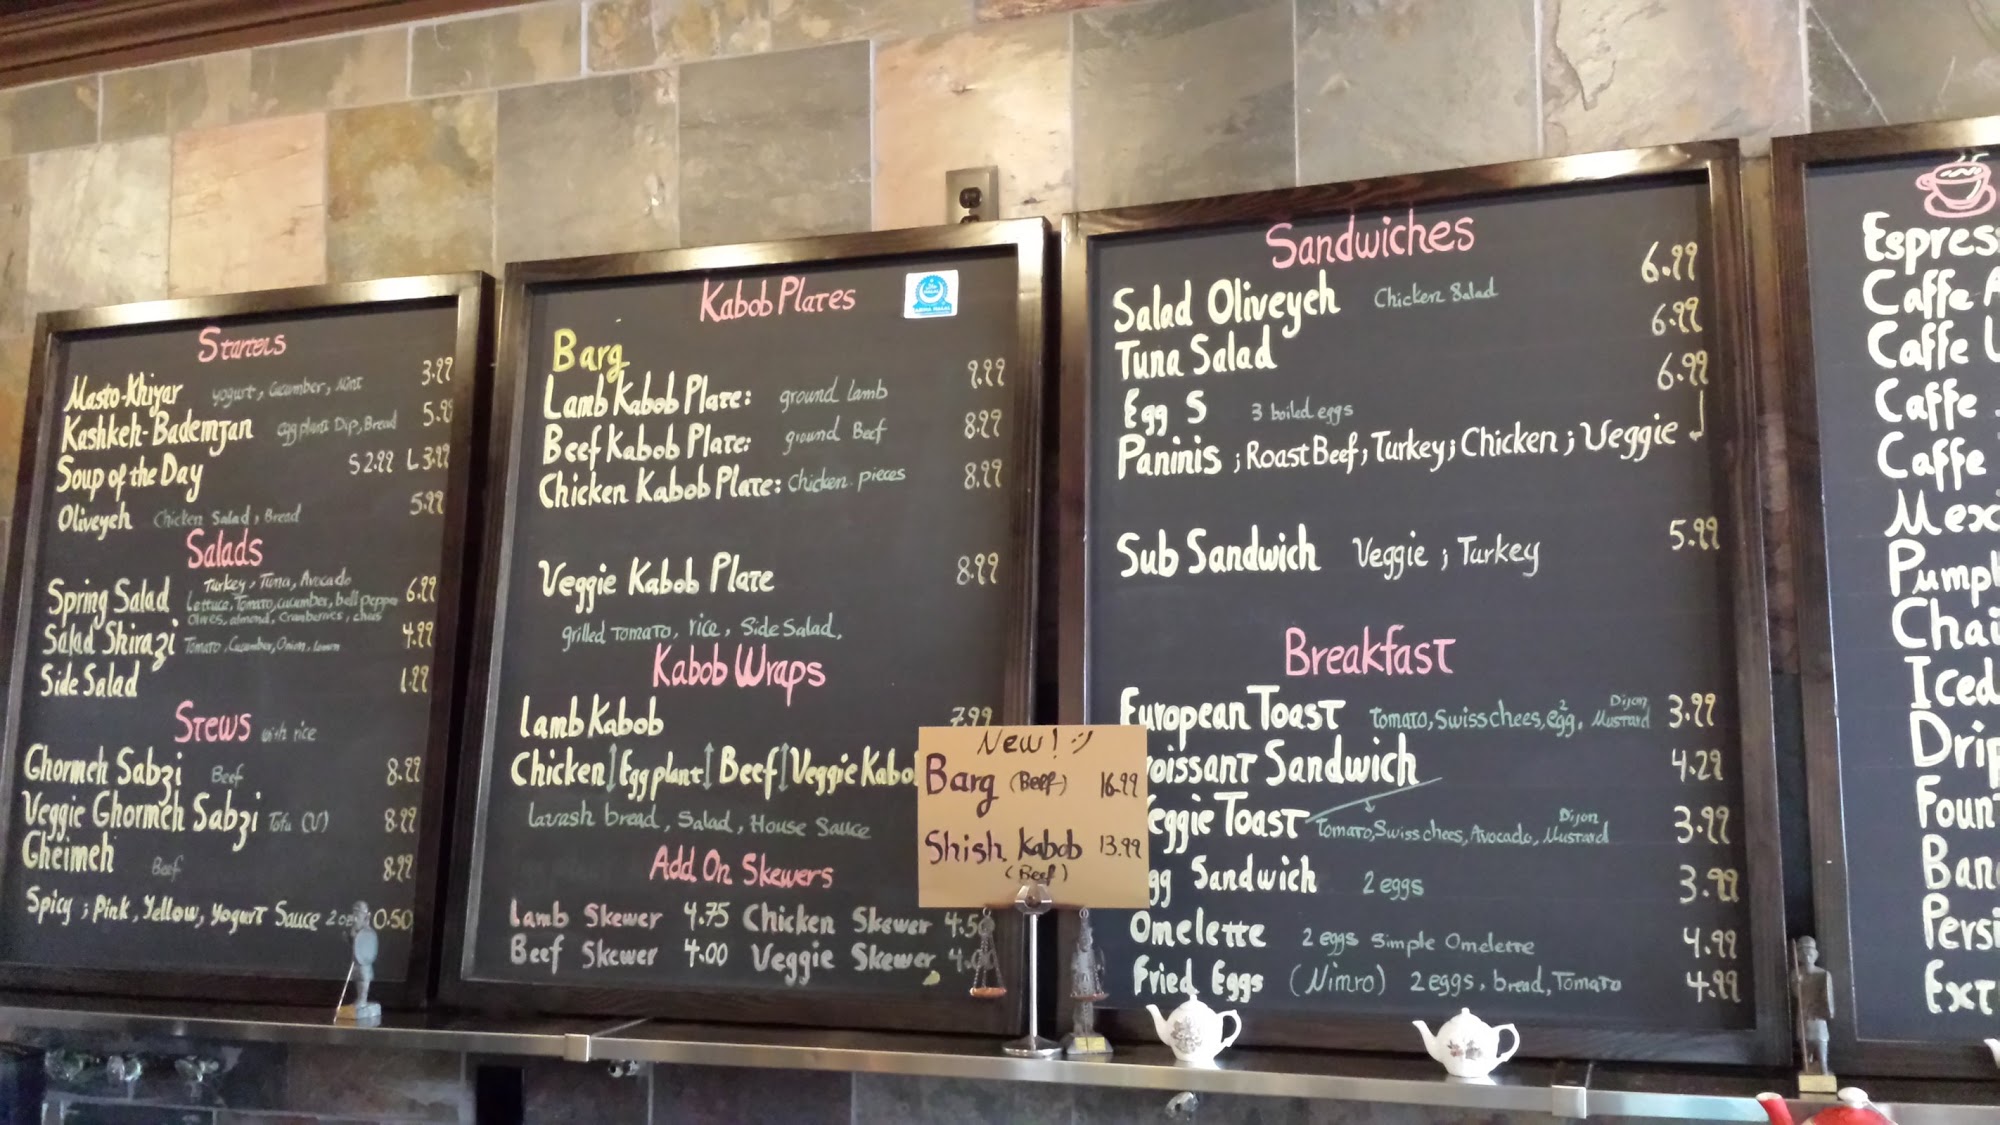 Starters
Masto-Khiyar yogurt, Cucumber, Mint 3.99
Kashkeh-Bademjan eggplant Dip, Bread 5.99
Soup of the Day S 2.99 L 3.99
Oliveyeh Chicken Salad, Bread 5.99
Salads
Turkey, Tuna, Avocado
Spring Salad Lettuce, Tomato, cucumber, bell pepper 6.99
Olives, almond, Cranberries, chees
Salad Shirazi Tomato, Cucumber, Onion, Lemon 4.99
Side Salad 1.99
Stews with rice
Ghormeh Sabzi Beef 8.99
Veggie Ghormeh Sabzi Tofu (V) 8.99
Gheimeh Beef 8.99
Spicy ; Pink, Yellow, Yogurt Sauce 0.50
Kabob Plates
Barg
Lamb Kabob Plate: ground lamb 9.99
Beef Kabob Plate: ground Beef 8.99
Chicken Kabob Plate: Chicken pieces 8.99
Veggie Kabob Plate 8.99
grilled Tomato, rice, Side Salad,
Kabob Wraps
Lamb Kabob 7.99
Chicken Eggplant Beef Veggie Kabo
lavash bread, Salad, House Sauce
Add On Skewers
Lamb Skewer 4.75 Chicken Skewer 4.50
Beef Skewer 4.00 Veggie Skewer 4.00
New! :)
Barg (Beef) 16.99
Shish Kabob 13.99
(Beef)
Sandwiches
Salad Oliveyeh Chicken Salad 6.99
Tuna Salad 6.99
Egg S 3 boiled eggs 6.99
Paninis ; Roast Beef ; Turkey ; Chicken ; Veggie
Sub Sandwich Veggie ; Turkey 5.99
Breakfast
European Toast Tomato, Swiss chees, egg 2, Dijon Mustard 3.99
roissant Sandwich 4.29
eggie Toast Tomato, Swiss chees, Avocado, Dijon Mustard 3.99
gg Sandwich 2 eggs 3.99
Omelette 2 eggs Simple Omelette 4.99
Fried Eggs (Nimro) 2 eggs, bread, Tomato 4.99
Espres
Caffe A
Caffe
Caffe
Caffe
Mexi
Pump
Chai
Iced
Drip
Foun
Ban
Persi
Ext